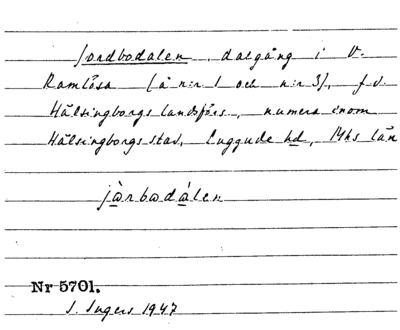 Jordbodalen, dalgång i V.
Ramlösa (å n:r 1 och n:r 3), f.d.
Hälsingborgs landsförs., numera inom
Hälsingborgs stad, Luggude hd, Mhs län
jàrbadálen
Nr 5701.
I. Ingers 1947